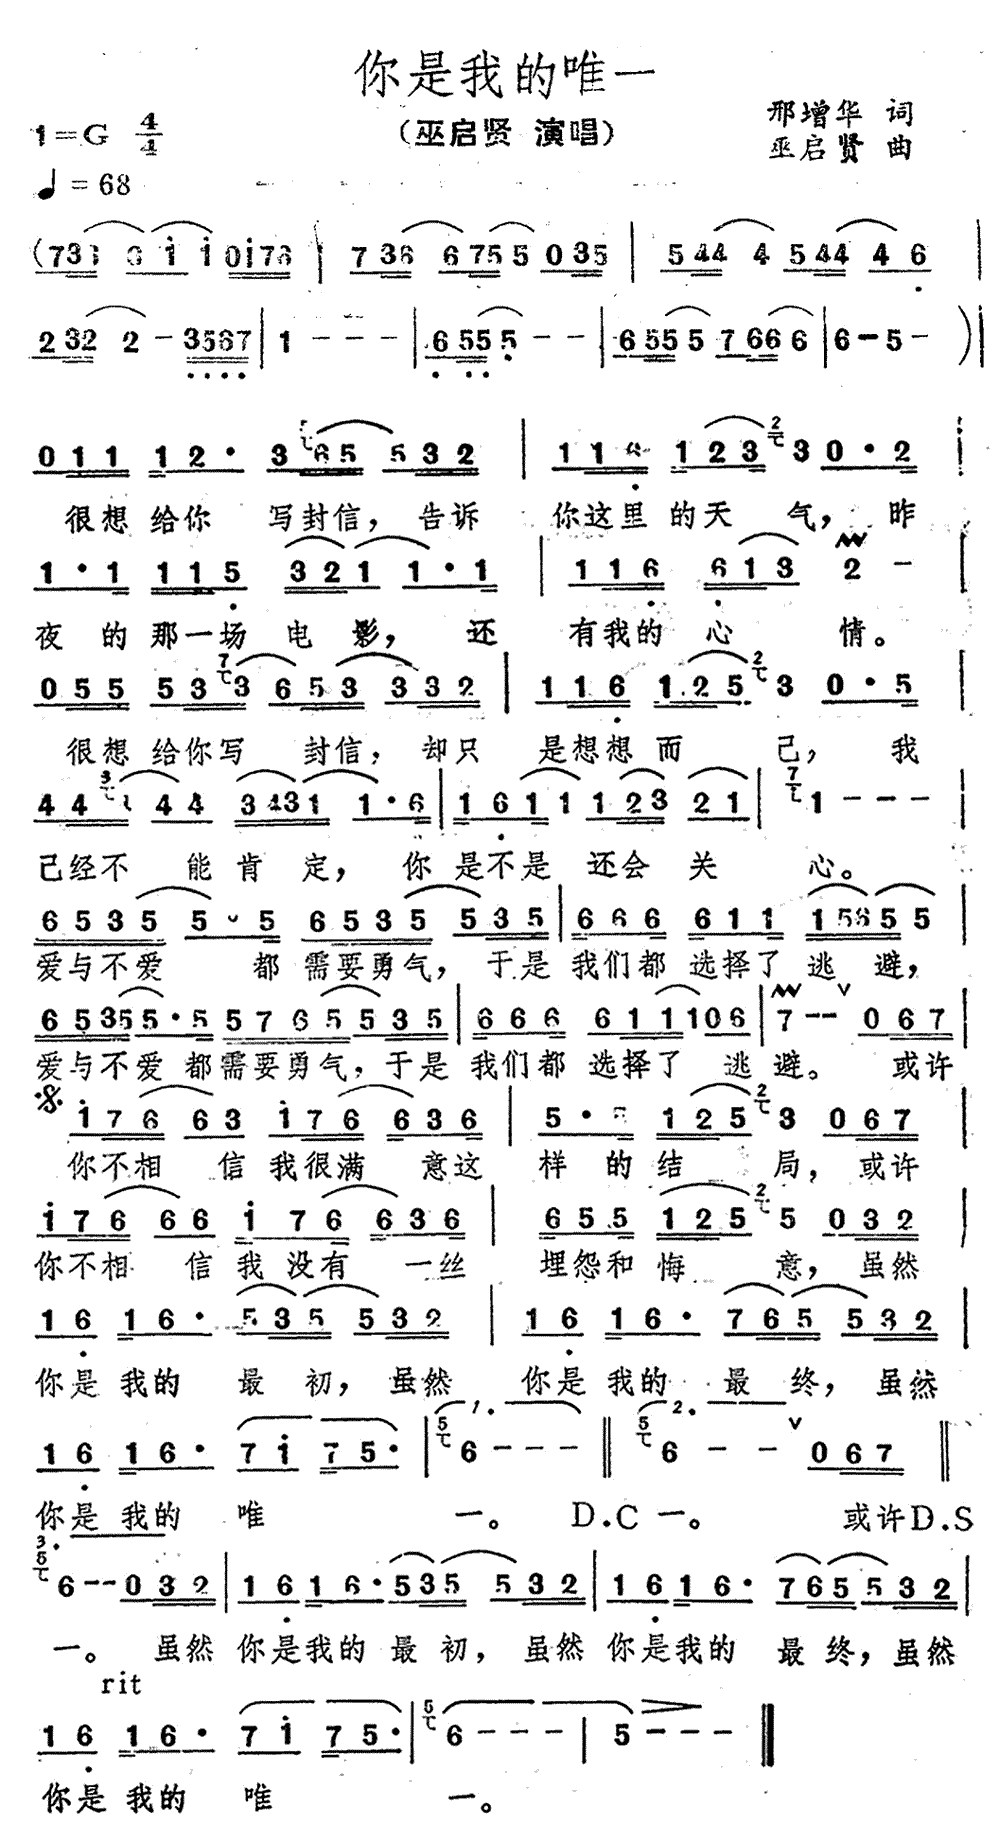 你是我的唯一
(巫启贤 演唱)
邢增华 词
巫启贤 曲
1=G 4/4
♩=68
(7 3 6 6 i i 0 i 7 6 | 7 3 6 6 7 5 5 0 3 5 | 5 4 4 4 5 4 4 4 6 |
2 3 2 2 - 3 5 6 7 | 1 - - - | 6 5 5 5 - - | 6 5 5 5 7 6 6 6 | 6 - 5 - )
0 1 1 1 2 · 3 6 5 5 3 2 | 1 1 6 1 2 3 3 0 · 2
很想 给你 写封信, 告诉 你这里 的天 气, 昨
1 · 1 1 1 5 3 2 1 1 · 1 | 1 1 6 6 1 3 2 -
夜 的 那一场 电 影, 还 有我的 心 情。
0 5 5 5 3 3 6 5 3 3 3 2 | 1 1 6 1 2 5 3 0 · 5
很想 给你写 封信, 却只 是想想 而 已, 我
4 4 4 4 3 4 3 1 1 · 6 | 1 6 1 1 1 2 3 2 1 | 1 - - -
已经不 能肯 定, 你 是不是 还会 关 心。
6 5 3 5 5 5 6 5 3 5 5 3 5 | 6 6 6 6 1 1 1 5 6 5 5
爱与不爱 都 需要勇气, 于是 我们都 选择了 逃 避,
6 5 3 5 5 · 5 5 7 6 5 5 3 5 | 6 6 6 6 1 1 1 0 6 | 7 - - 0 6 7
爱与不爱 都需要勇气, 于是 我们都 选择了 逃 避。 或许
i 7 6 6 3 i 7 6 6 3 6 | 5 · 5 1 2 5 3 0 6 7
你不相 信 我很满 意这 样 的 结 局, 或许
i 7 6 6 6 i 7 6 6 3 6 | 6 5 5 1 2 5 5 0 3 2
你不相 信 我 没有 一丝 埋怨和 悔 意, 虽然
1 6 1 6 · 5 3 5 5 3 2 | 1 6 1 6 · 7 6 5 5 3 2
你是 我的 最 初, 虽然 你是 我的 最 终, 虽然
1 6 1 6 · 7 i 7 5 · | 1. 6 - - - ‖ 2. 6 - - 0 6 7 ‖
你是 我的 唯 一。 D.C 一。 或许 D.S
3. 6 - - 0 3 2 | 1 6 1 6 · 5 3 5 5 3 2 | 1 6 1 6 · 7 6 5 5 3 2 |
一。 虽然 你是我的 最 初, 虽然 你是我的 最 终, 虽然
rit
1 6 1 6 · 7 i 7 5 · | 6 - - - | 5 - - - ‖
你是 我的 唯 一。